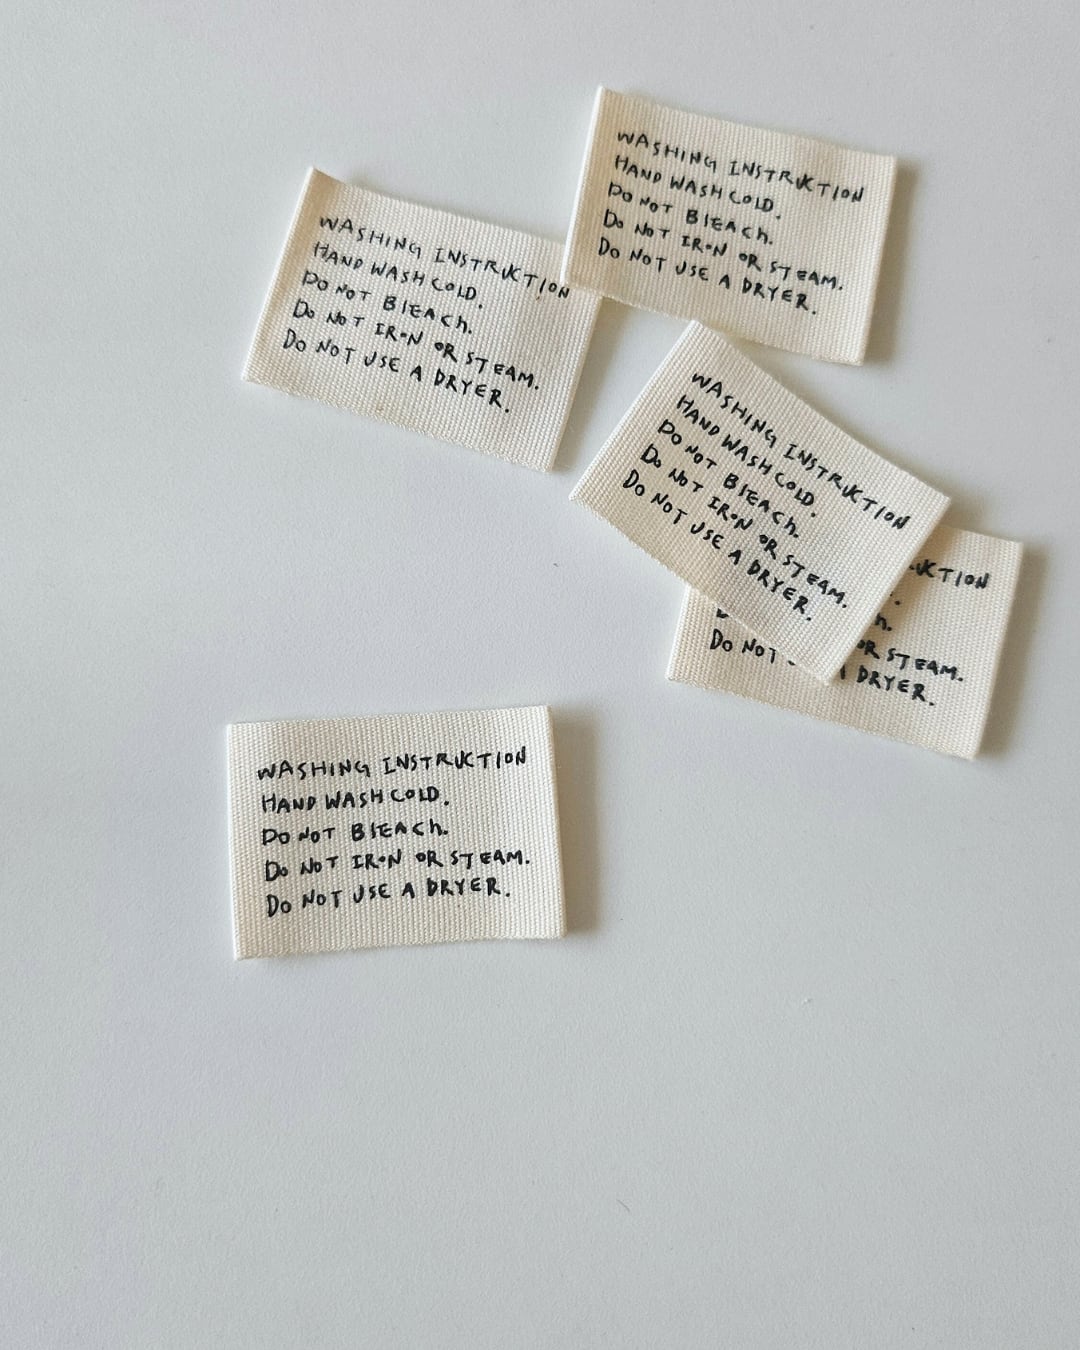 WASHING INSTRUCTION
HAND WASH COLD.
DO NOT BLEACH.
DO NOT IRON OR STEAM.
DO NOT USE A DRYER.
WASHING INSTRUCTION
HAND WASH COLD.
DO NOT BLEACH.
DO NOT IRON OR STEAM.
DO NOT USE A DRYER.
WASHING INSTRUCTION
HAND WASH COLD.
DO NOT BLEACH.
DO NOT IRON OR STEAM.
DO NOT USE A DRYER.
OR STEAM.
DO NOT DRYER.
WASHING INSTRUCTION
HAND WASH COLD.
DO NOT BLEACH.
DO NOT IRON OR STEAM.
DO NOT USE A DRYER.